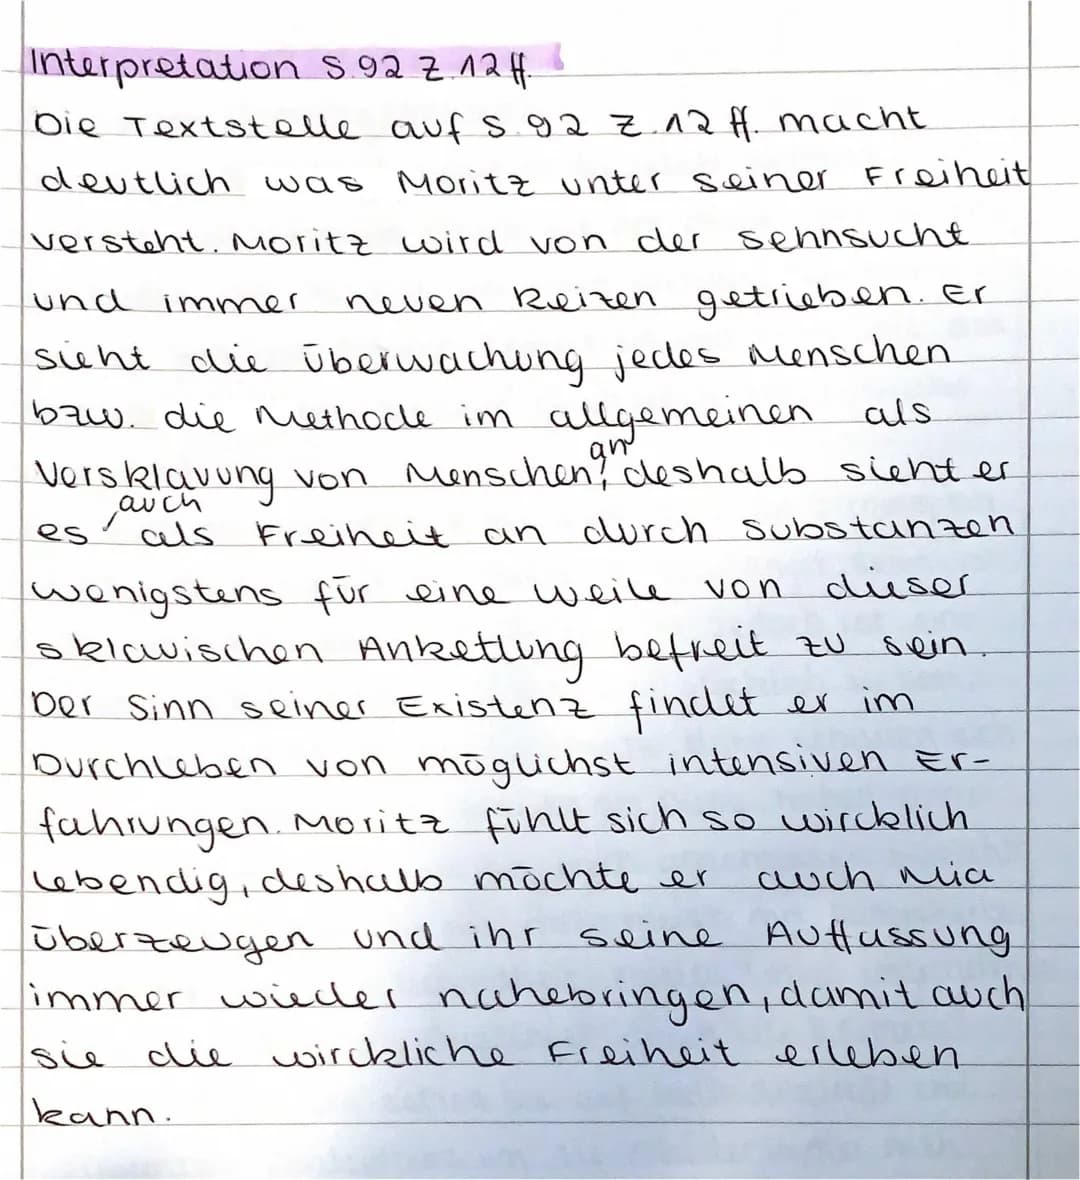 Interpretation S.92 Z.12ff.
Die Textstelle auf S.92 Z.12ff. macht
deutlich was Moritz unter seiner Freiheit
versteht. Moritz wird von der Sehnsucht
und immer neuen Reizen getrieben. Er
sieht die Überwachung jedes Menschen
bzw. die Methode im allgemeinen als
an
Versklavung von Menschen, deshalb sieht er
auch
es als Freiheit an durch Substanzen
wenigstens für eine Weile von dieser
sklavischen Ankettung befreit zu sein.
Der Sinn seiner Existenz findet er im
Durchleben von möglichst intensiven Er-
fahrungen. Moritz fühlt sich so wircklich
lebendig, deshalb möchte er auch Mia
überzeugen und ihr seine Auffassung
immer wieder nahebringen, damit auch
sie die wirckliche Freiheit erleben
kann.